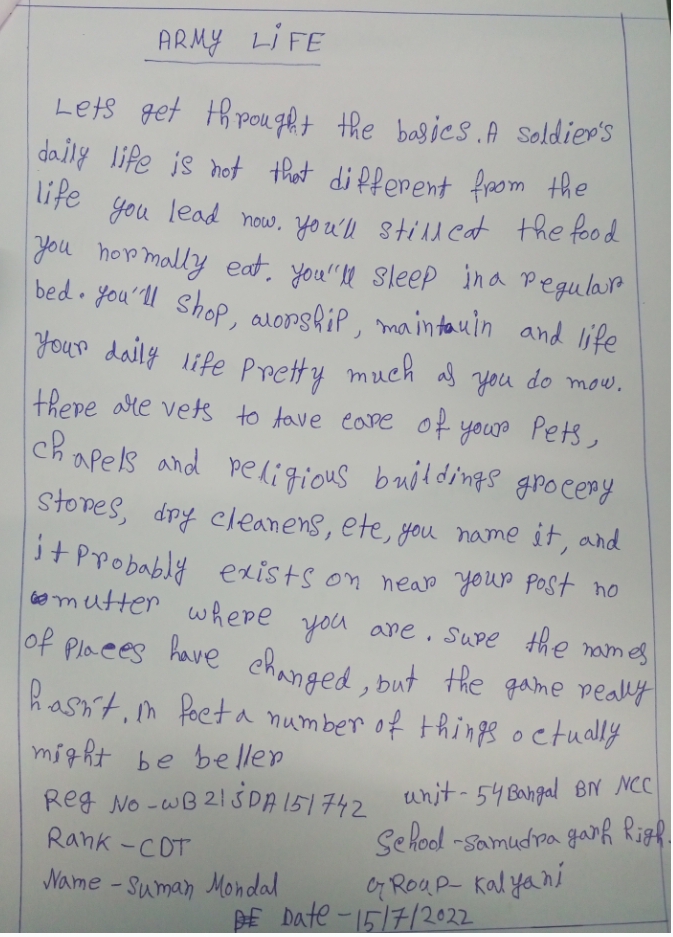 ARMY LiFE
Lets get throught the basics. A soldier's
daily life is not that different from the
life you lead now. you'll still eat the food
you normally eat. you"ll sleep in a regular
bed. you'll shop, worship, maintauin and life
your daily life pretty much as you do mow.
there are vets to tave care of your Pets,
chapels and religious buildings grocery
stores, dry cleaners, ete, you name it, and
it probably exists on near your post no
mutter where you are. sure the names
of places have changed, but the game really
hasn't. in foct a number of things octually
might be beller
Reg No - WB21SDA151742 unit - 54 Bangal BN NCC
Rank - CDT School - Samudra garh high.
Name - Suman Mondal GRoup - Kalyani
Date - 15/7/2022